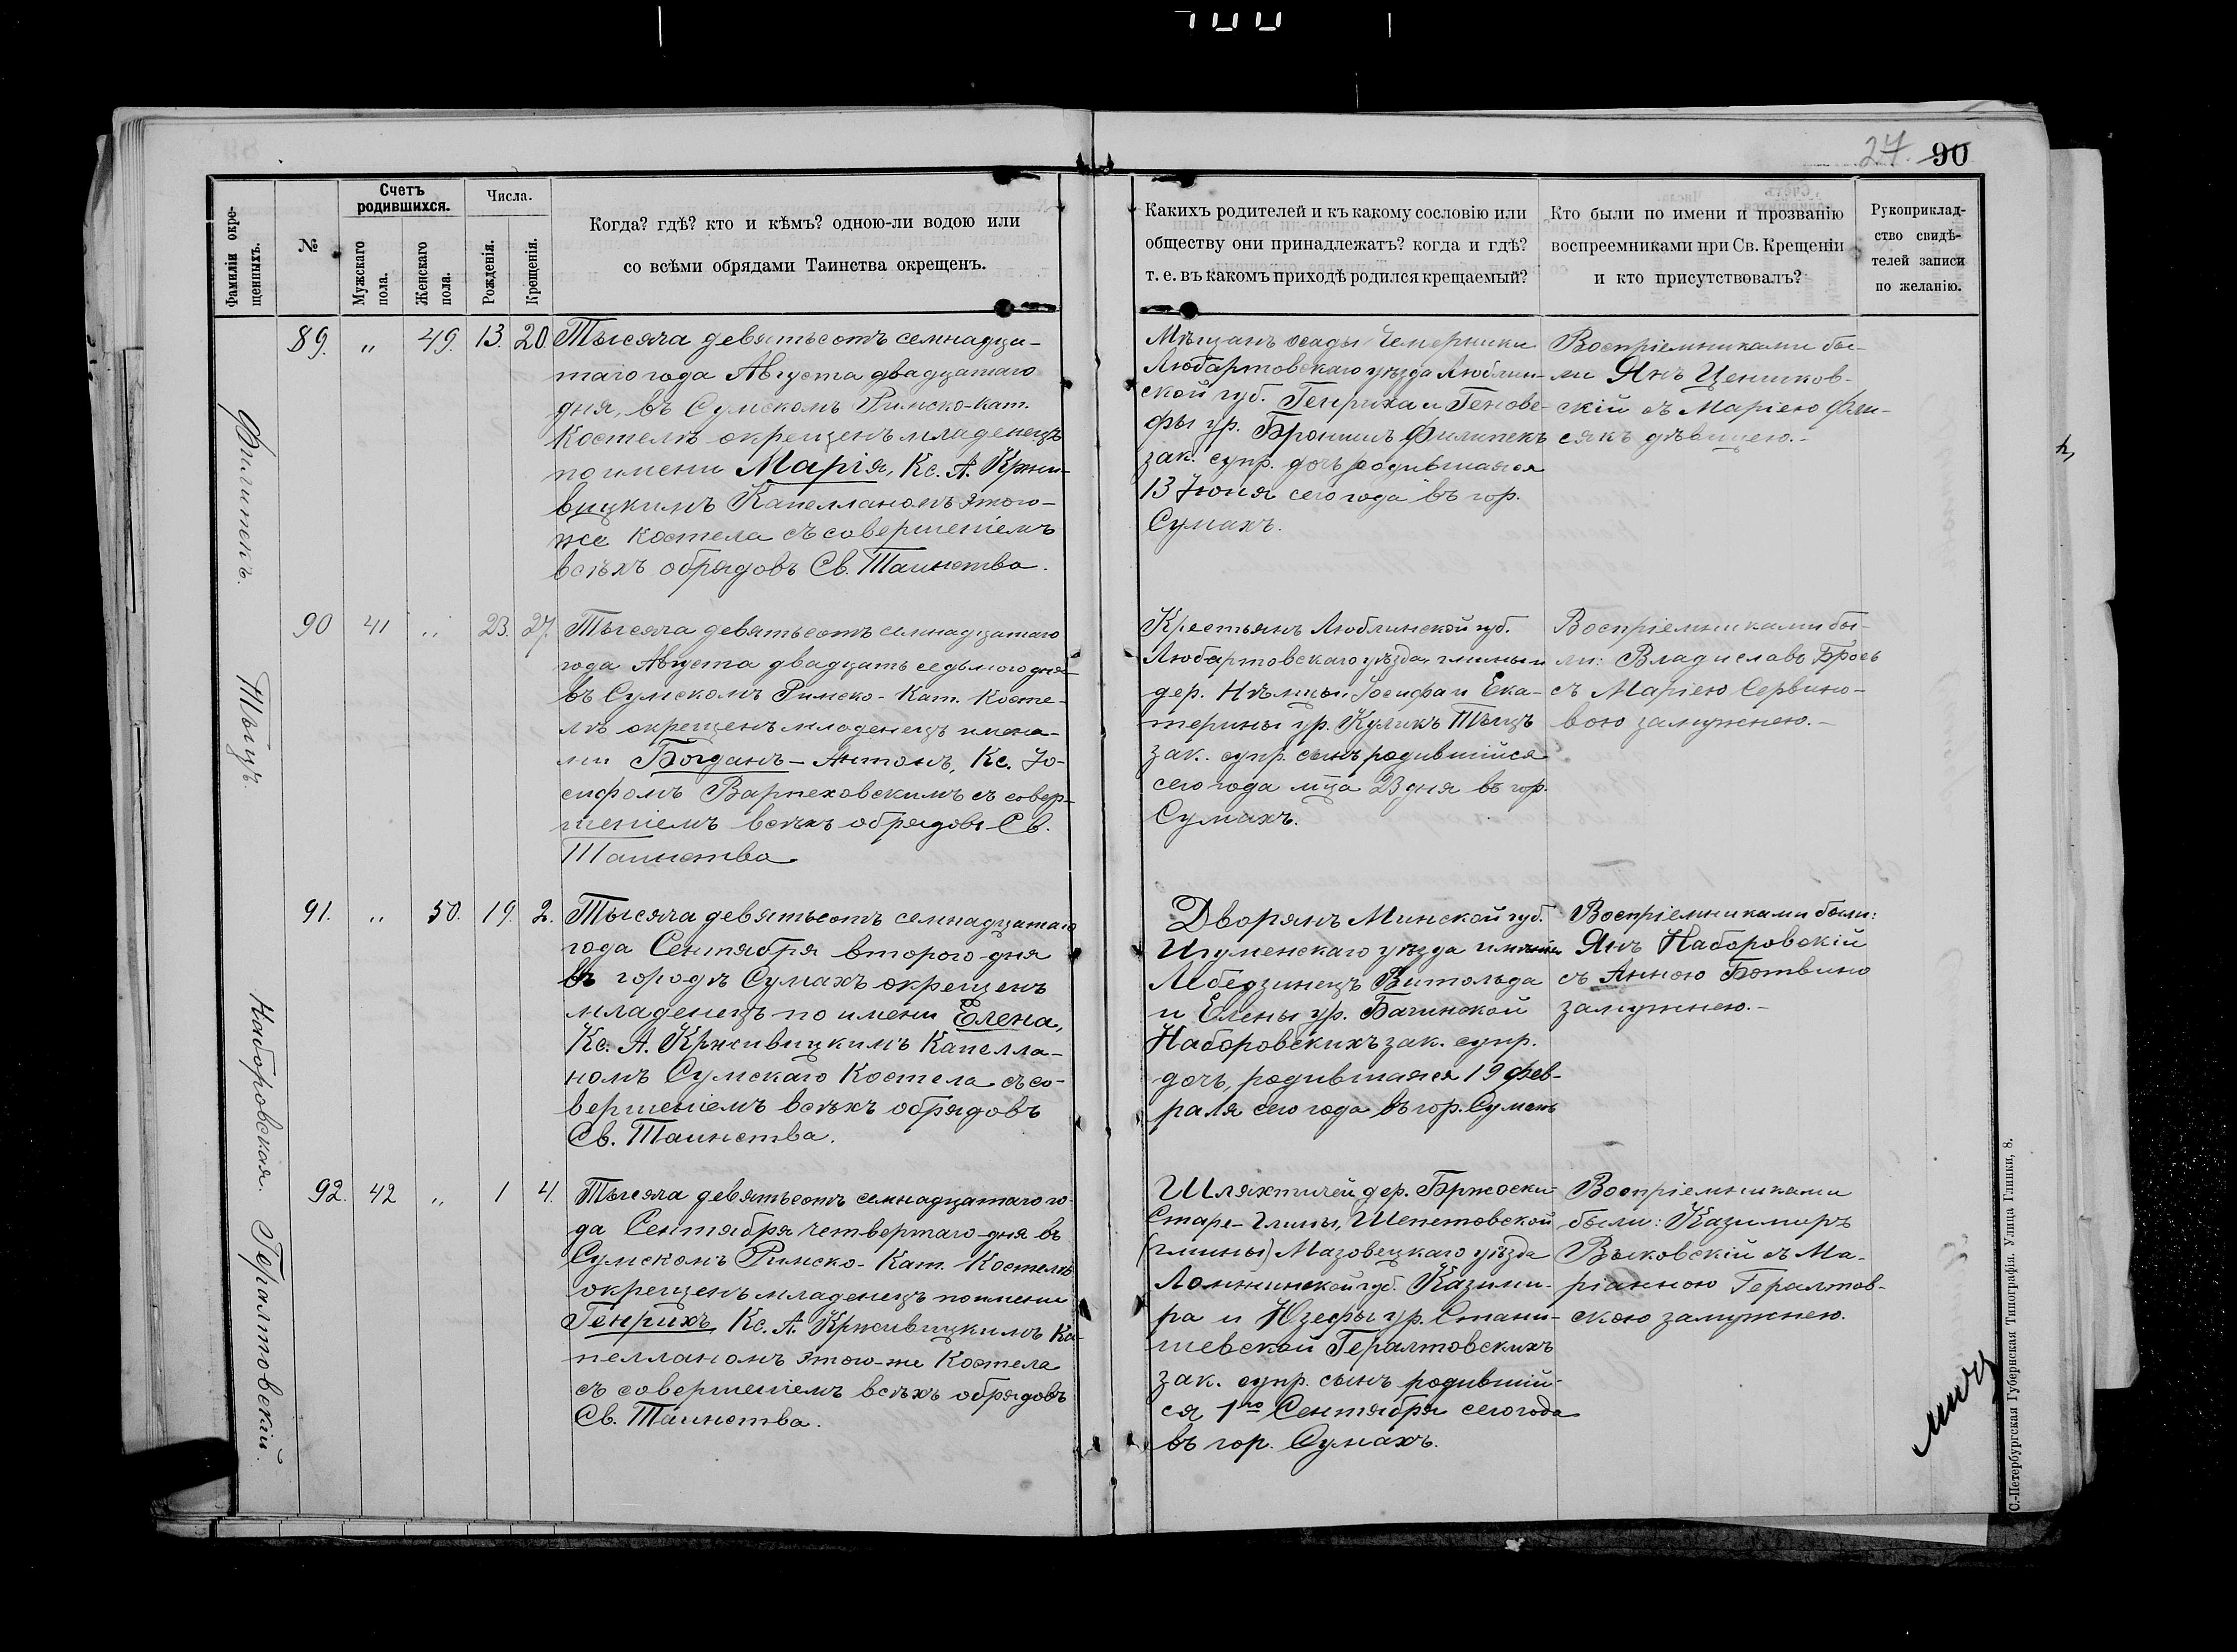 24. 90
Фамиліи окре-
щенныхъ.
№
Счетъ
родившихся.
Мужскаго
пола.
Женскаго
пола.
Числа.
Рожденія.
Крещенія.
Когда? гдѣ? кто и кѣмъ? одною-ли водою или
со всѣми обрядами Таинства окрещенъ.
Какихъ родителей и къ какому сословію или
обществу они принадлежатъ? когда и гдѣ?
т. е. въ какомъ приходѣ родился крещаемый?
Кто были по имени и прозванію
воспреемниками при Св. Крещеніи
и кто присутствовалъ?
Рукоприклад-
ство свидѣ-
телей записи
по желанію.
Филипекъ.
89. „ 49. 13. 20.
Тысяча девятьсотъ семнадца-
таго года Августа двадцатаго
дня, въ Сумскомъ Римско-Кат.
Костелѣ окрещенъ младенецъ
по имени Марія, Кс. А. Кржи-
вицкимъ Капелланомъ этого-
же Костела съ совершеніемъ
всѣхъ обрядовъ Св. Таинства.
Мѣщанъ осады Чемерники
Любартовскаго уѣзда Люблин-
ской губ. Генриха и Геновe-
фы ур. Филипекъ
зак. супр. дочь родившаяся
13 Іюня сего года въ гор.
Сумахъ.
Воспріемниками бы-
ли Янъ Цеников-
скій съ Маріею Фли-
сякъ дѣвицею.-
Тыцъ.
90 41 „ 23. 27.
Тысяча девятьсотъ семнадцатаго
года Августа двадцать седьмого дня
въ Сумскомъ Римско-Кат. Косте-
лѣ окрещенъ младенецъ имена-
ми Богданъ-Антонъ, Кс. Іо-
сифомъ Варпеховскимъ съ совер-
шеніемъ всѣхъ обрядовъ Св.
Таинства
Крестьянъ Люблинской губ.
Любартовскаго уѣзда, гмины и
дер. Нѣмцы, Іосифа и Ека-
терины ур. Куликъ Тыцъ
зак. супр. сынъ родившійся
сего года мца 23 дня въ гор.
Сумахъ.
Воспріемниками бы-
ли: Владиславъ Брось
съ Маріею Сервино-
вою замужнею.-
Наборовская.
91. „ 50. 19. 2.
Тысяча девятьсотъ семнадцатаго
года Сентября второго дня
въ городѣ Сумахъ окрещенъ
младенецъ по имени Елена,
Кс. А. Кржививицкимъ Капелла-
номъ Сумскаго Костела съ со-
вершеніемъ всѣхъ обрядовъ
Св. Таинства.
Дворянъ Минской губ.
Игуменскаго уѣзда имѣнія
Лебедзинецъ Витольда
и Елены ур. Багинской
Наборовскихъ зак. супр.
дочь, родившаяся 19 фев-
раля сего года въ гор. Сумахъ
Воспріемниками были:
Янъ Наборовскій
съ Анною Ботвино
замужнею.-
Гералтовскій.
92. 42 „ 1 4.
Тысяча девятьсотъ семнадцатаго го-
да Сентября четвертаго дня въ
Сумскомъ Римско-Кат. Костелѣ
окрещенъ младенецъ по имени
Генрихъ Кс. А. Кржививицкимъ Ка-
пелланомъ этого-же Костела
съ совершеніемъ всѣхъ обрядовъ
Св. Таинства.
Шляхтичей дер. Бржоски-
Старе- Шепетовской
(гмины) Мазовецкаго уѣзда
Ломжинской губ. Казими-
ра и Юзефы ур. Стани-
шевской Гералтовскихъ
зак. супр. сынъ родившій-
ся 1го Сентября сего года
въ гор. Сумахъ.
Воспріемниками
были: Казимиръ
Выковскій съ Ма-
ріанною Гералтов-
скою замужнею.
С.-Петербургская Губернская Типографія. Улица Глинки, 8.